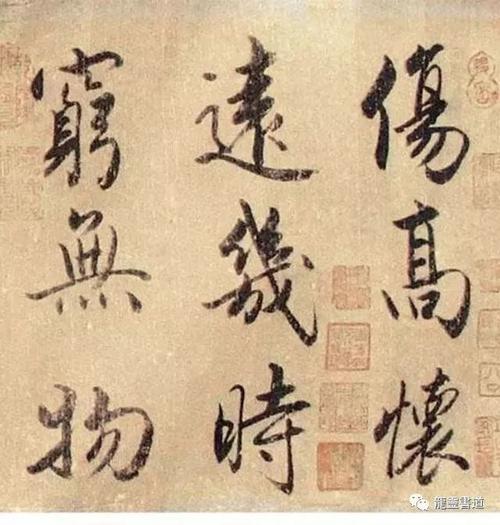 傷高懷
遠幾時
窮無物
龍靈書道